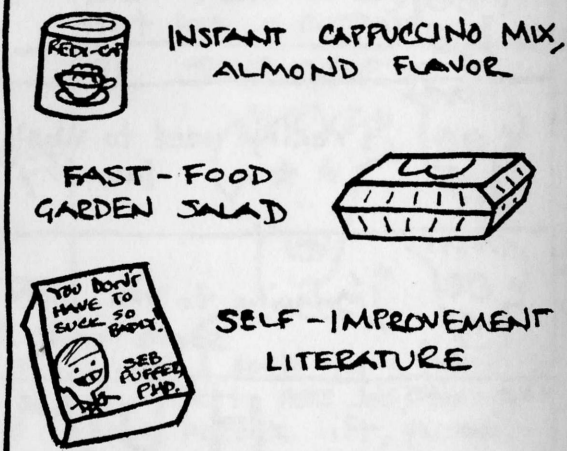 REDI-CAP
INSTANT CAPPUCCINO MIX,
ALMOND FLAVOR
FAST-FOOD
GARDEN SALAD
YOU DON'T
HAVE TO
SUCK SO
BADLY!
SEB
PUFFER,
PHD.
SELF-IMPROVEMENT
LITERATURE